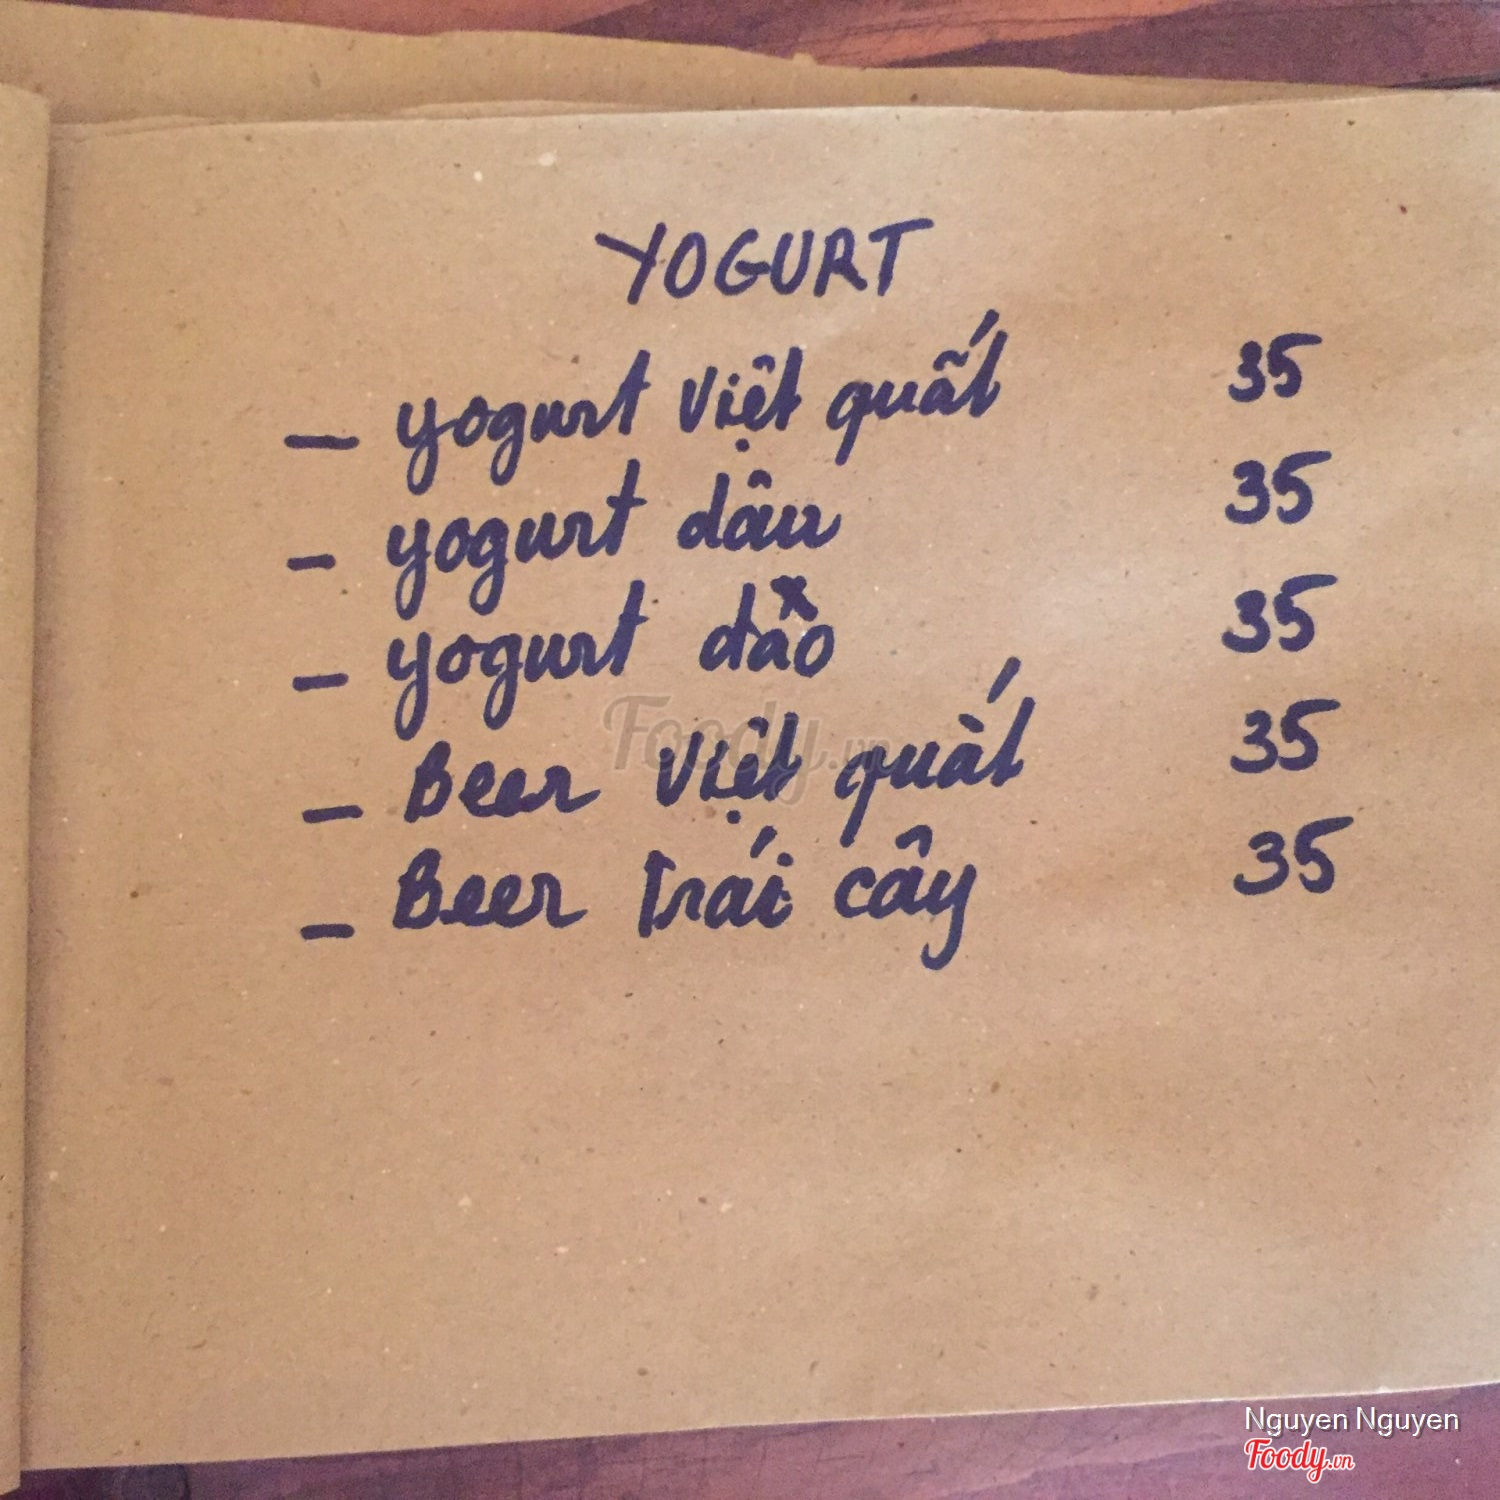 YOGURT
- yogurt Việt quất 35
- yogurt dâu 35
- yogurt đào 35
- Beer Việt quất 35
- Beer trái cây 35
Foody.vn
Nguyen Nguyen
Foody.vn